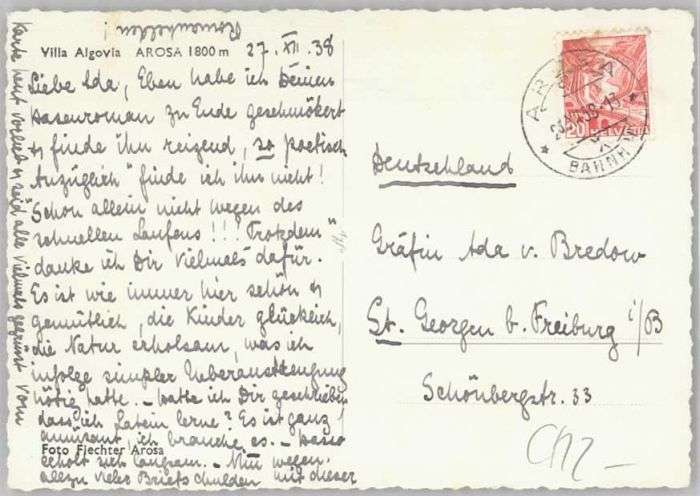 Villa Algovia AROSA 1800 m 27. XII. 38
Liebe Ada, Eben habe ich Deinen
Hasenroman zu Ende geschmökert
& finde ihn reizend, so poetisch.
"Anzüglich" finde ich ihn nicht!
Schon allein nicht wegen des
schnellen Laufens!!! Trotzdem
danke ich Dir vielmals dafür.
Es ist wie immer hier schön &
gemütlich, die Kinder glücklich,
die Natur erholsam, was ich
infolge simpler Ueberanstrengung
nötig hatte. – Hatte ich Dir geschrieben
dass ich Latein lerne? Es ist ganz
amüsant, ich brauche es. –
erholt sich langsam. – Nun wegen
allzu vieler Briefschulden mit dieser
Karte vorlieb & seid alle vielmals gegrüsst vom
Romanhelden!
Foto Fiechter Arosa
AROSA
BAHNH
20
Deutschland
Gräfin Ada v. Bredow
St. Georgen b. Freiburg i/B
Schönbergstr. 33